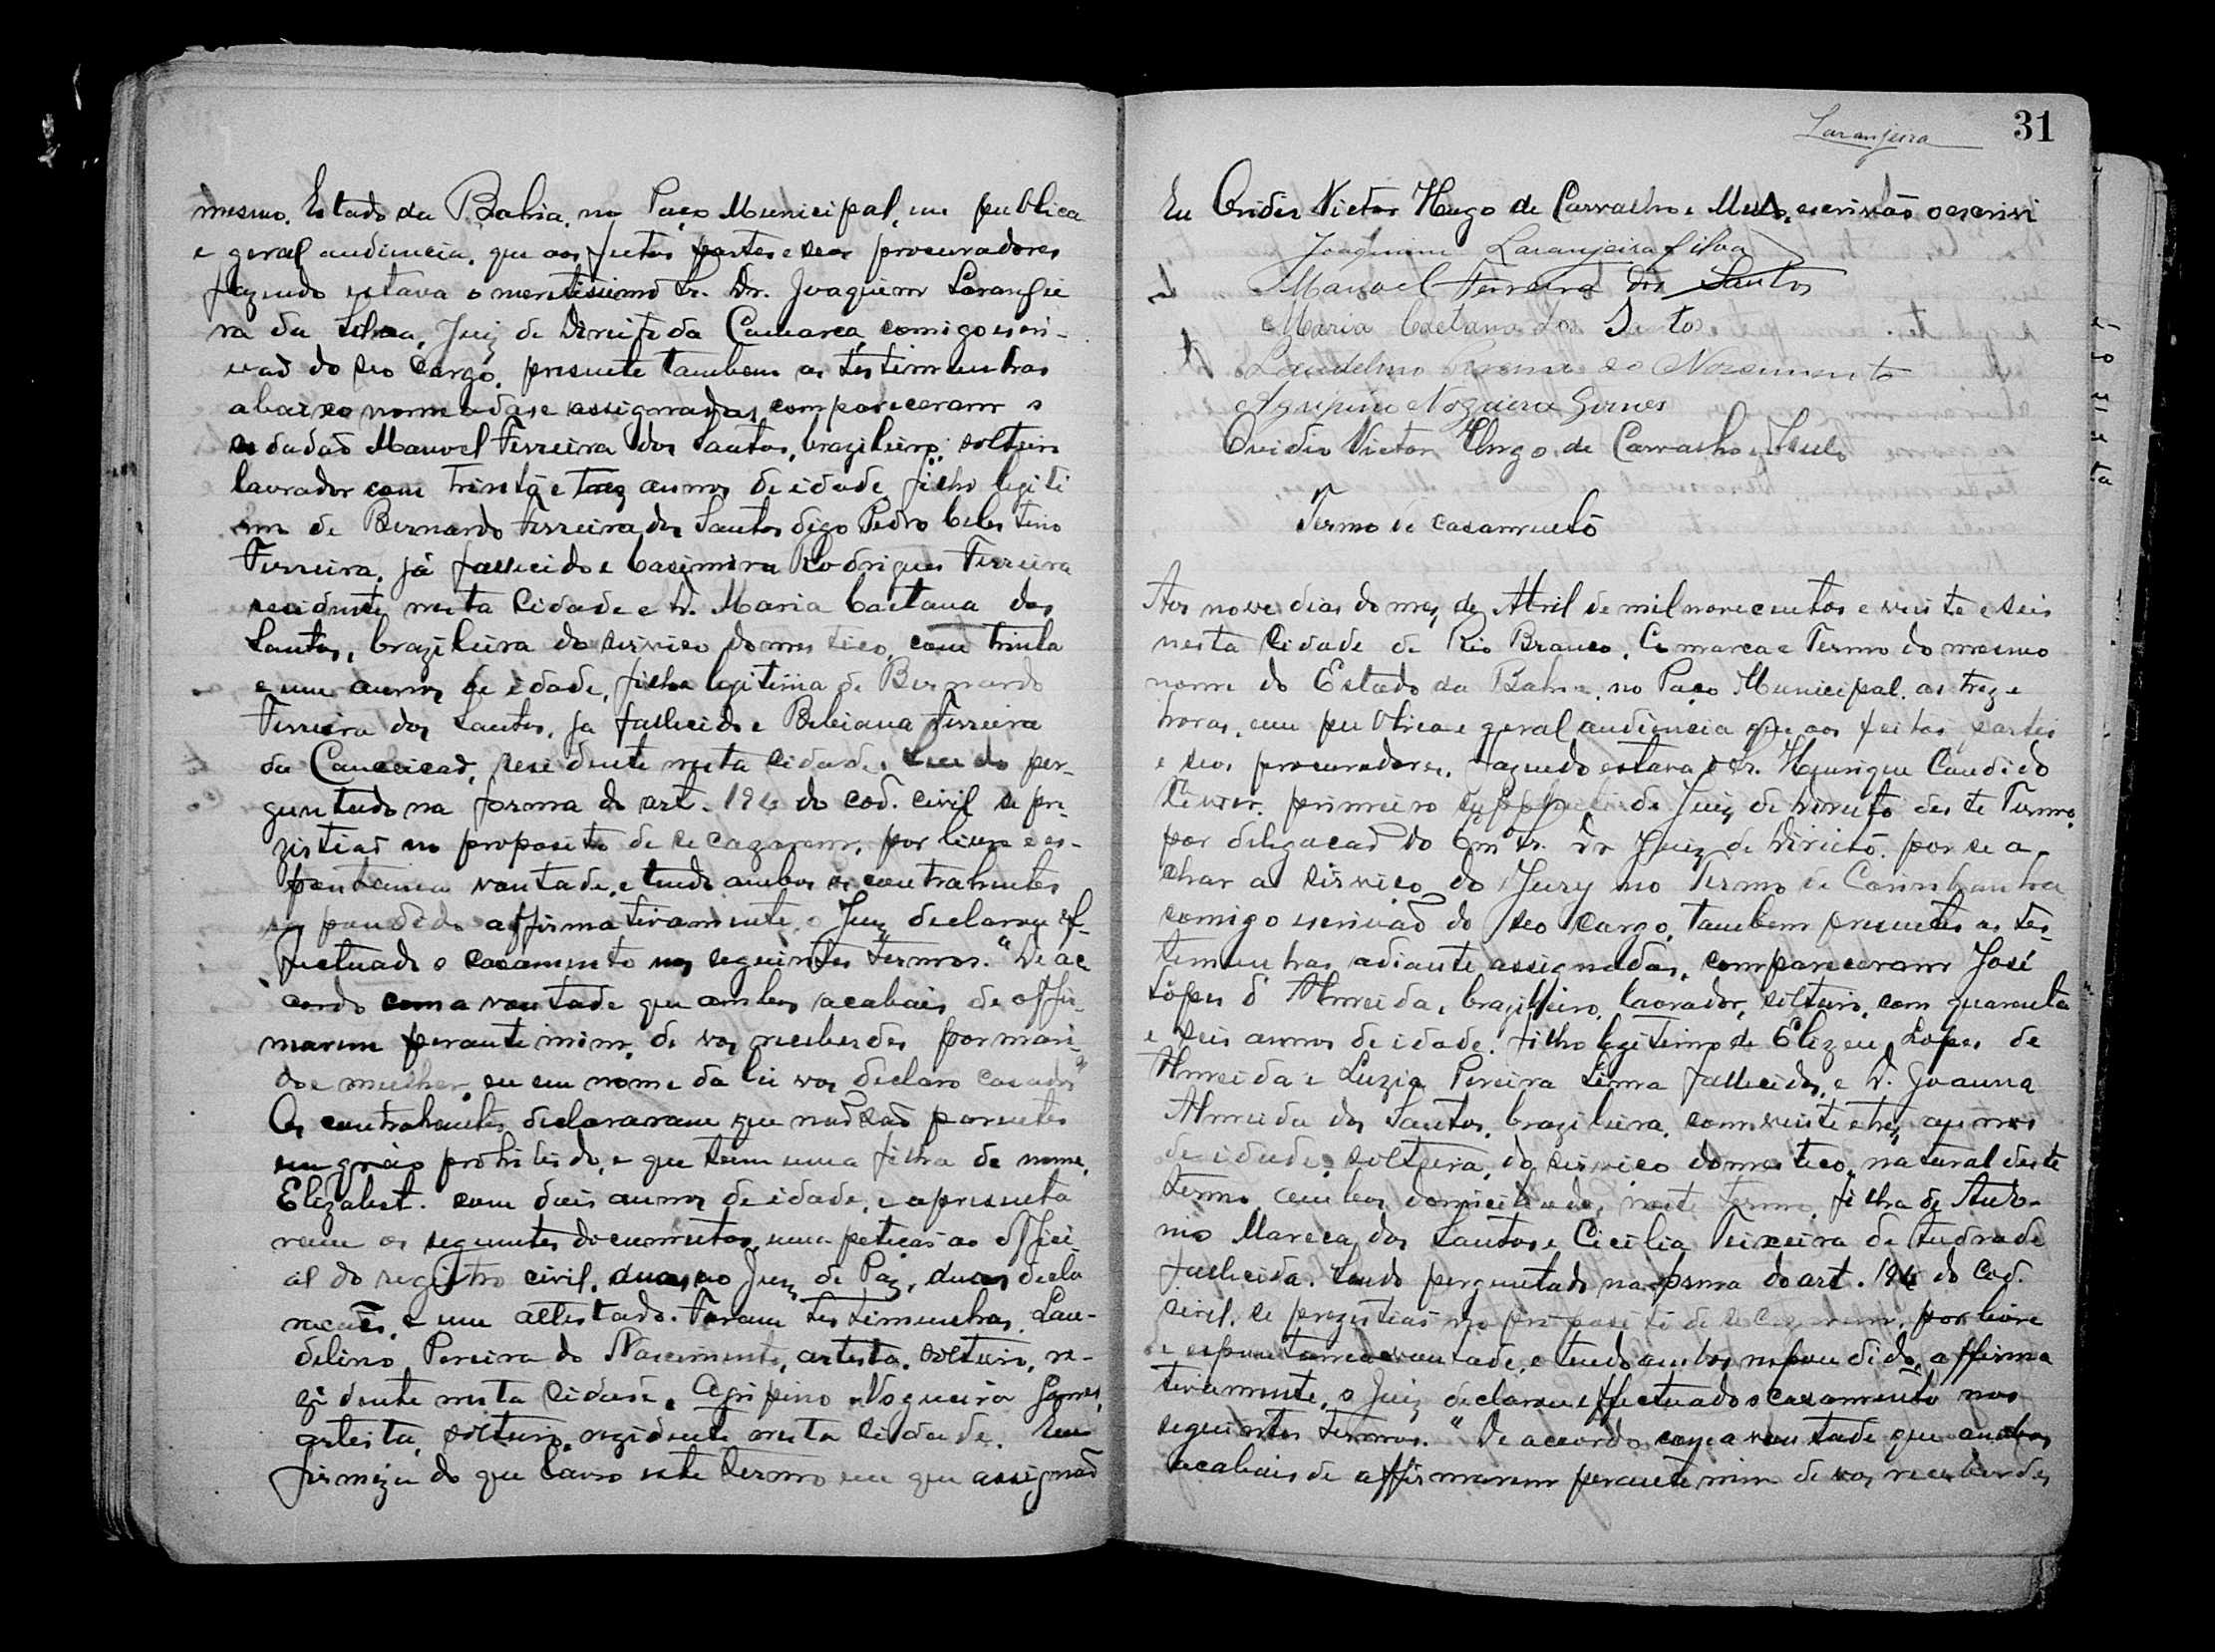 mesmo. Estado da Bahia, no Paço Municipal, em publica
e geral audiencia, que aos feitos partes e seos procuradores
fazendo estava o meritissimo Sr. Dr. Joaquim Laranjei
ra da Silva, Juiz de Direito da Comarca, comigo escri-
vaõ do seo cargo, presente tambem as testimunhas
abaixo nomeadas e assignadas, compareceram o
cidadaõ Manoel Ferreira dos Santos, brazileiro, solteiro
lavrador com trinta e trez annos de idade filho legiti
mo de Bernardo Ferreira dos Santos digo Pedro Celes tino
Ferreira, já fallecido e Casimira Rodrigues Ferreira
rezidente nesta Cidade e D. Maria Caetana dos
Santos, brazileira do serviço domestico, com trinta
e um annos de idade, filha legitima de Bernardo
Ferreira dos Santos, ja fallecido e Bibiana Ferreira
da Conceicaõ, residente nesta Cidade. Sendo per-
guntado na forma do art. 194 do cod. civil se per-
zistiaõ no proposito de se cazarem, por livre e es-
pontanea vontade, e tendo ambos os contrahentes
respondido affirmativamente, o Juiz declarou ef-
fectuado o casamento nos seguintes termos. "De ac
cordo com a vontade que ambos acabais de affir-
marem perante mim, de vos receberdes por mari-
do e mulher, eu em nome da lei vos declaro casados"
Os contrahentes declararam que naõ saõ parentes
em gráo prohibido, e que tem uma filha de nome
Elizabet. com dois annos de idade, e apresenta
ram os seguintes documentos, uma petiçaõ ao offici
al do registro civil, duas ao Juiz de Paz, duas decla
racões, e um attestado. Foram testimunhas. Lau-
delino Pereira do Nascimento, artista, solteiro, re-
zidente nesta Cidade, Agripino Nogueira Gomes,
artista, solteiro, rezidente nesta Cidade. Em
firmeza do que lavro este termo em que assignaõ
Laranjeira 31
Eu Ovidio Victor Hugo de Carvalho e Mello, escrivão o escrivi
Joaquim Laranjeira Silva
Manoel Ferreira dos Santos
Maria Caetana dos Santos
Laudelino Pereira do Nascimento
Agripino Nogueira Gomes
Ovidio Victor Hugo de Carvalho e Mello
Termo de casamento
Aos nove dias do mez de Abril de mil novecentos e vinte e seis
nesta Cidade de Rio Branco, Comarca e Termo do mesmo
nome do Estado da Bahia, no Paço Municipal. as treze
horas, em publica e geral audiencia que aos feitos partes
e seos procuradores, fazendo estava o Sr. Henrique Candido
primeiro supplente de Juiz de Direito deste Termo,
por delegacaõ do Exmº Sr. Dr Juiz de Direito, por se a-
char a serviço do Jury no Termo de Carinhanha
comigo escrivaõ do seo cargo, tambem presentes as tes-
temunhas adiante assignadas, compareceram José
Lopes d' Almeida, brazileiro, lavrador, solteiro, com quarenta
e seis annos de idade, filho legitimo de Elizeu Lopes de
Almeida e Luzia Pereira Lima fallecidos, e D. Joanna
Almeida dos Santos, brazileira, com vinte e trez annos
de idade, solteira, do serviço domestico, natural deste
termo ambos domiciliados neste termo, filha de Anto-
nio Mareca dos Santos e Cicilia Teixeira de Andrade
fallecida. Sendo perguntado na forma do art. 194 do Cod.
civil, se prezistiaõ no proposito de se cazarem, por livre
e espontanea vontade, e tendo ambos respondido, affirma
tivamente, o Juiz declarou effectuado o casamento nos
seguintes termos. "De accordo com a vontade que ambos
acabais de affirmarem perante mim de vos receberdes